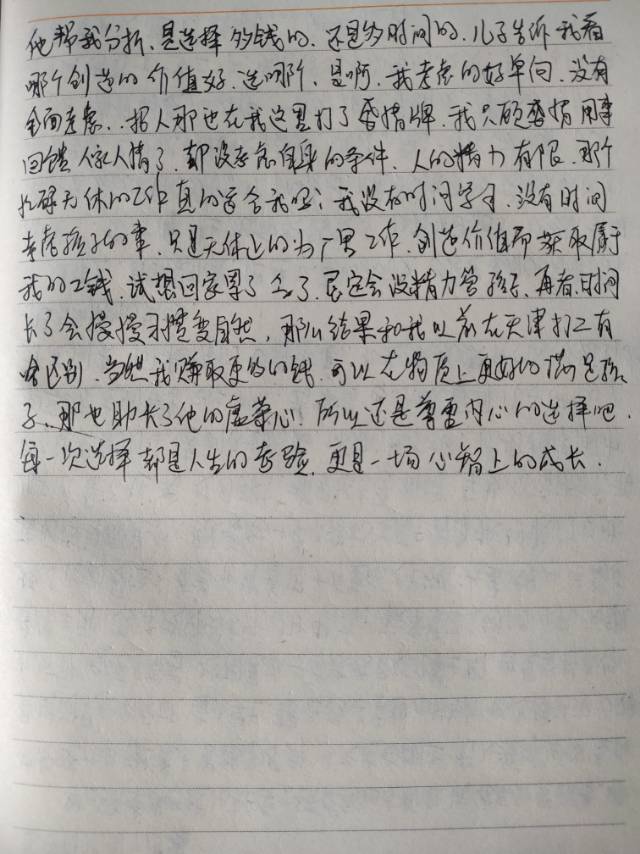 他帮我分析、是选择多钱的、还是多时间的、儿子告诉我看
哪个创造的价值好、选哪个、是啊、我考虑的好单向、没有
全面考虑、招人那也在我这里打了感情牌、我只顾感情用事
回馈人家人情了、却没考虑自身的条件、人的精力有限、那个
无休的工作真的适合我吗；我没有时间学习、没有时间
考虑孩子的事、只是无休止的为厂里工作、创造价值而获取属于
我的工钱、试想回家累了、肯定会没精力管孩子、再者、时间
长了会慢慢习惯变自然，那么结果和我以前在天津打工有
啥区别、当然我赚取更多的钱、可以在物质上更好的满足孩
子、那也助长了他的虚荣心、所以还是尊重内心的选择吧、
每一次选择都是人生的考验、更是一场心智上的成长．